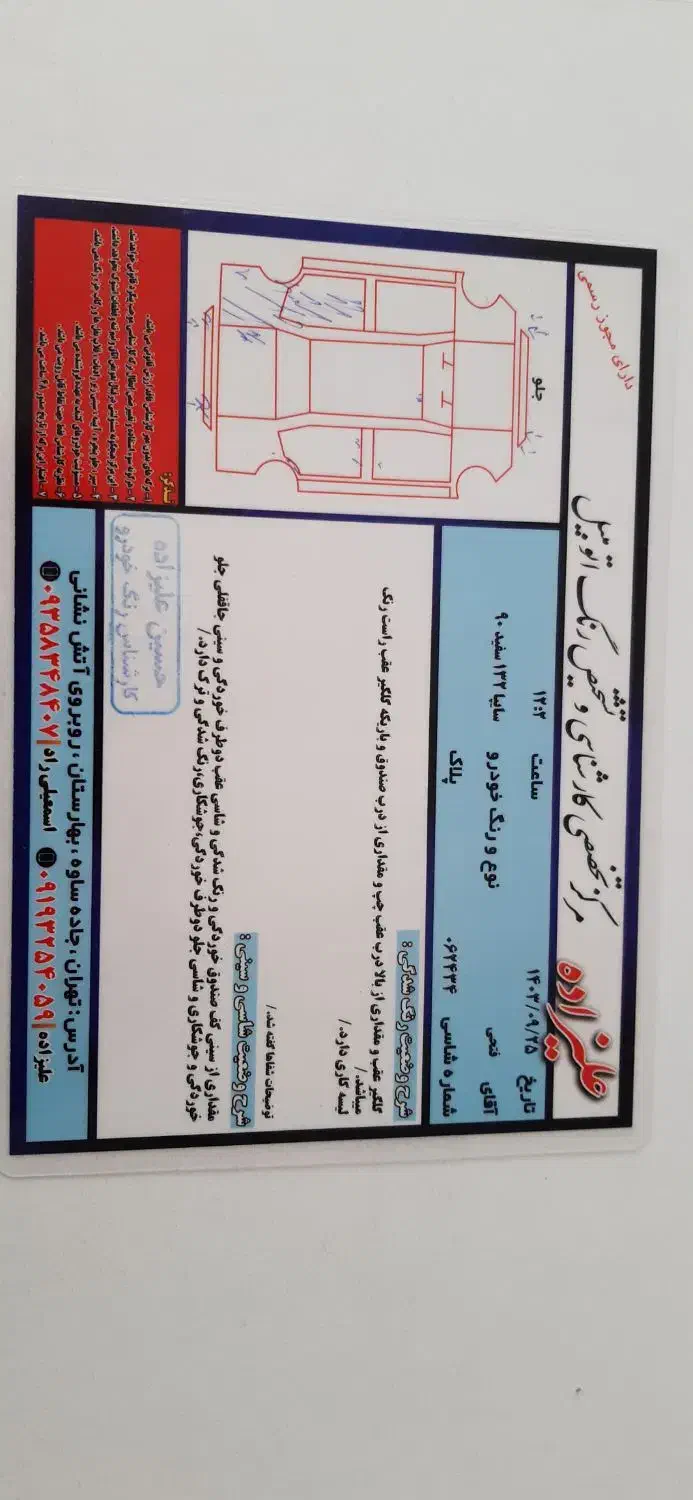 دارای مجوز رسمی
مرکز تخصصی کارشناسی و تشخیص رنگ اتومبیل
علیزاده
تاریخ ۱۴۰۳/۰۹/۲۵ ساعت ۱۲:۲
آقای فتحی نوع و رنگ خودرو سایپا ۱۳۲ سفید ۹۰
شماره شاسی ۰۶۲۴۳۴ پلاک
جلو
شرح وضعیت رنگ شدگی :
گلگیر عقب و مقداری از بالا درب عقب چپ و مقداری از درب صندوق و باریکه گلگیر عقب راست رنگ
میباشد./
لیسه کاری دارد./
توضیحات شفاها گفته شد./
شرح وضعیت شاسی و سینی :
مقداری از سینی کف صندوق خوردگی و رنگ شدگی و شاسی عقب دوطرف خوردگی و سینی جاقفلی جلو
خوردگی و جوشکاری و شاسی جلو دوطرف خوردگی،جوشکاری،رنگ شدگی و ترک دارد./
حسین علیزاده
کارشناس رنگ خودرو
تذکر:
آدرس: تهران ، جاده ساوه ، بهارستان ، روبروی آتش نشانی
علیزاده | ۰۹۱۹۳۲۵۴۰۵۹ اسمعیلی راد | ۰۹۳۵۸۳۴۸۴۰۷